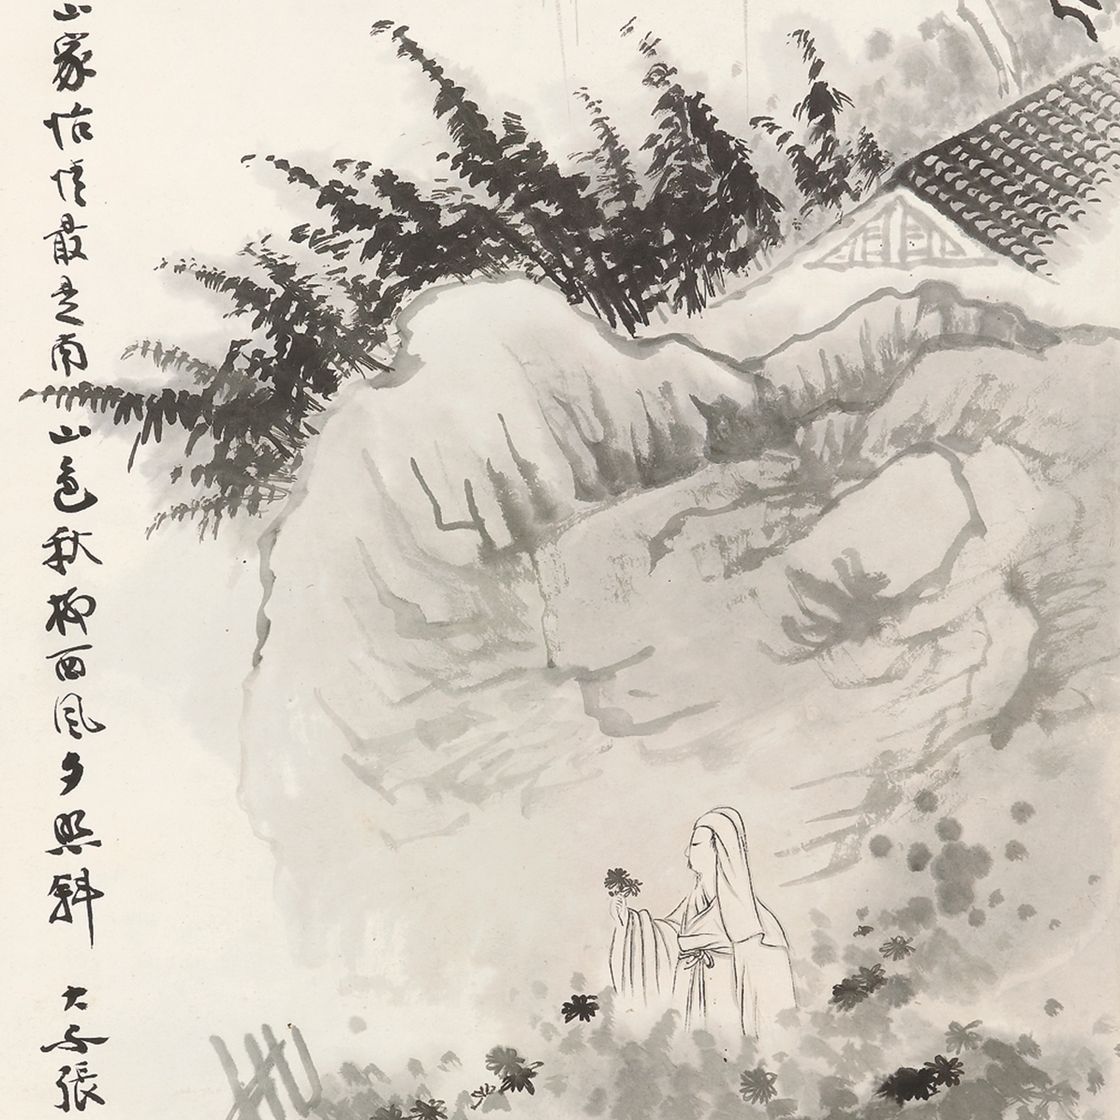 山家怡情最是南山色秋柳西風夕照斜 大千張